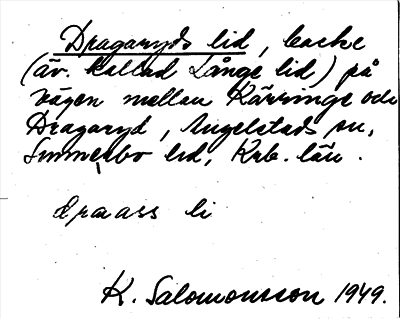 Dragaryds lid, backe
(äv. kallad Långe lid) på
vägen mellan Kärringe och
Dragaryd, Angelstads sn,
Sunnerbo hd, Krb. län.
draass li
K. Salomonsson 1949.